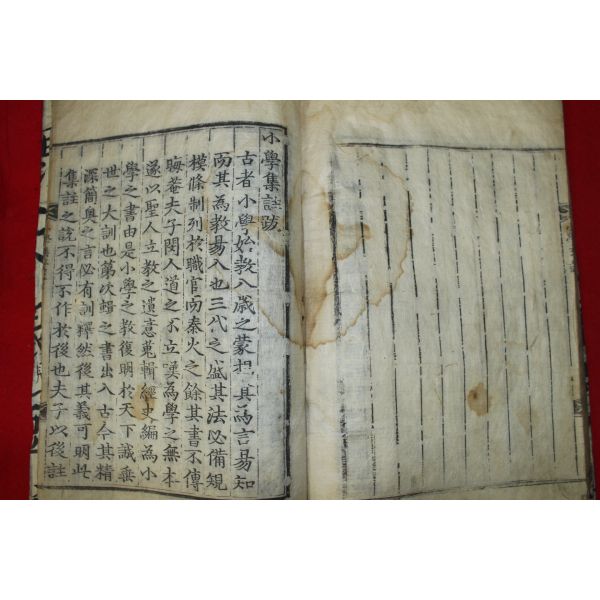 小學集註跋
古者小學始敎八歲之蒙㧯其爲言昜知
而其爲敎昜入也三代之盛其法必備規
模條制列於職官而秦火之餘其書不傳
晦菴夫子閔人道之不立嘆爲學之無本
遂以聖人立敎之遺意蒐輯經史編爲小
學之書由是小學之敎復明於天下誠垂
世之大訓也第次輯之書出入古今其精
深簡奧之言必有訓釋然後其義可明此
集註之說不得不作於後也夫子以後註